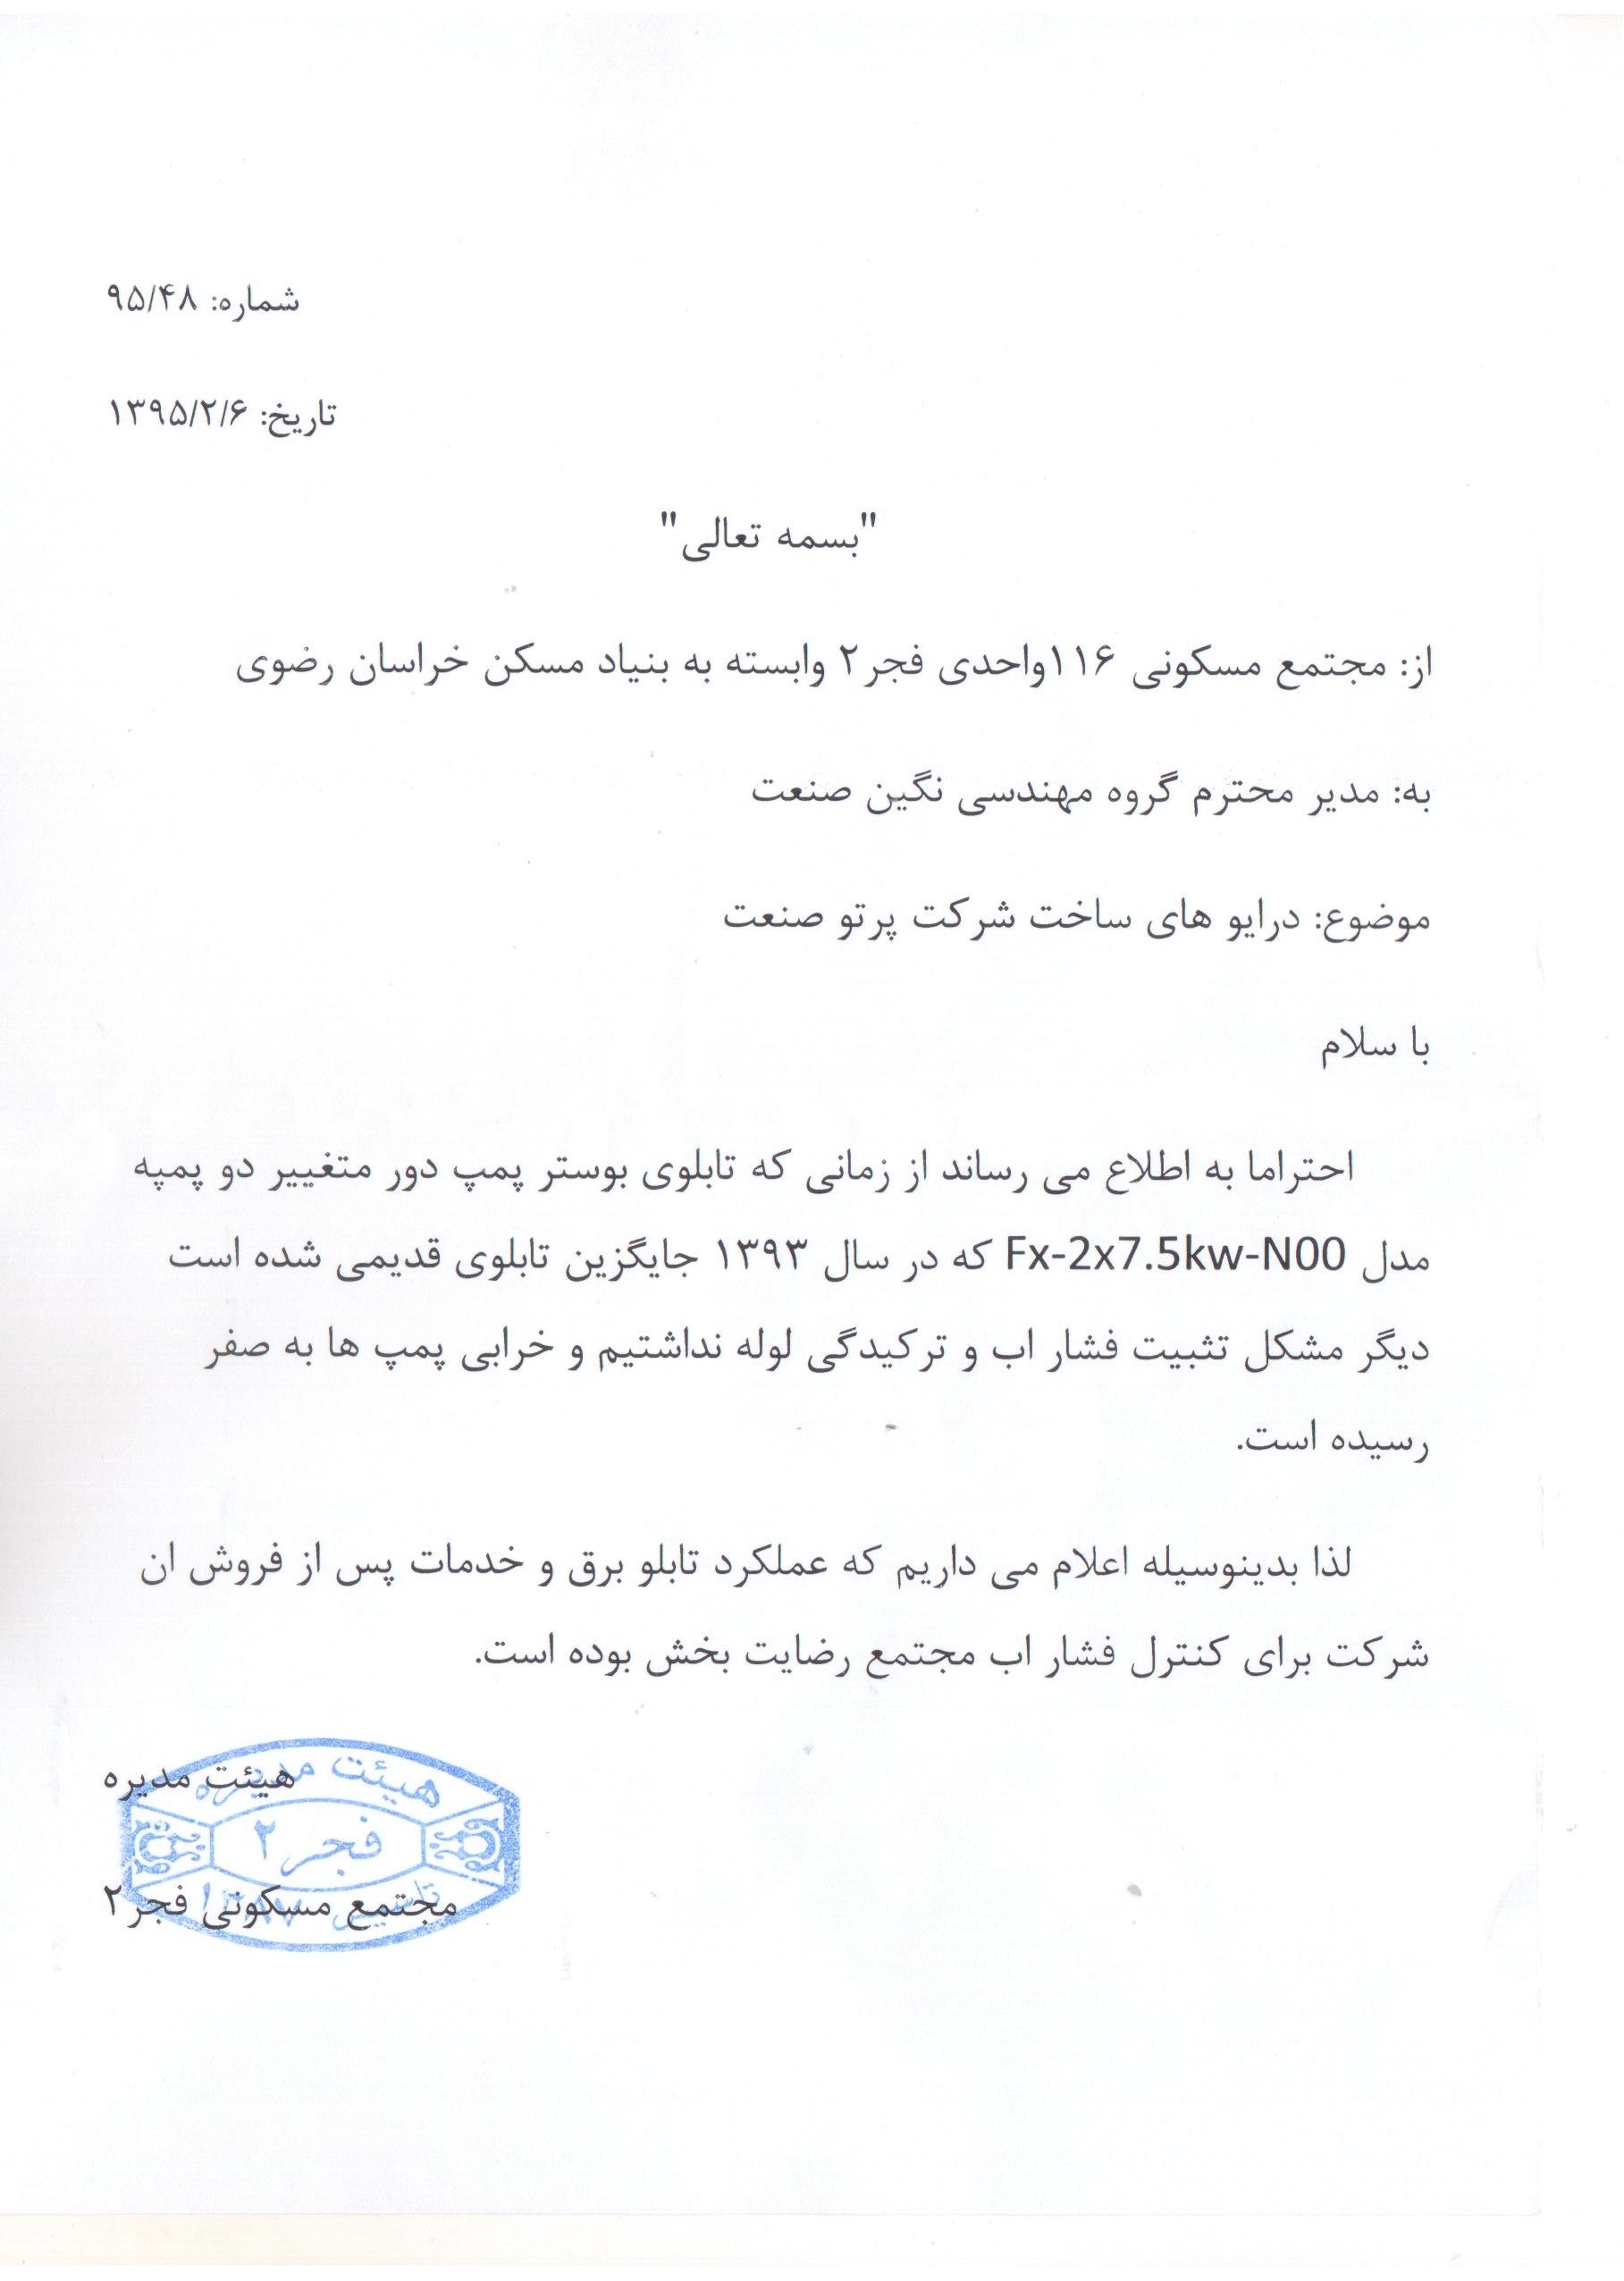 شماره: ۹۵/۴۸
تاریخ: ۱۳۹۵/۲/۶
"بسمه تعالی"
از: مجتمع مسکونی ۱۱۶واحدی فجر۲ وابسته به بنیاد مسکن خراسان رضوی
به: مدیر محترم گروه مهندسی نگین صنعت
موضوع: درایو های ساخت شرکت پرتو صنعت
با سلام
احتراما به اطلاع می رساند از زمانی که تابلوی بوستر پمپ دور متغییر دو پمپه
مدل Fx-2x7.5kw-N00 که در سال ۱۳۹۳ جایگزین تابلوی قدیمی شده است
دیگر مشکل تثبیت فشار اب و ترکیدگی لوله نداشتیم و خرابی پمپ ها به صفر
رسیده است.
لذا بدینوسیله اعلام می داریم که عملکرد تابلو برق و خدمات پس از فروش ان
شرکت برای کنترل فشار اب مجتمع رضایت بخش بوده است.
هیئت مدیره
مجتمع مسکونی فجر۲
هیئت مدیره
فجر ۲
تاسیس ۱۳۸۷